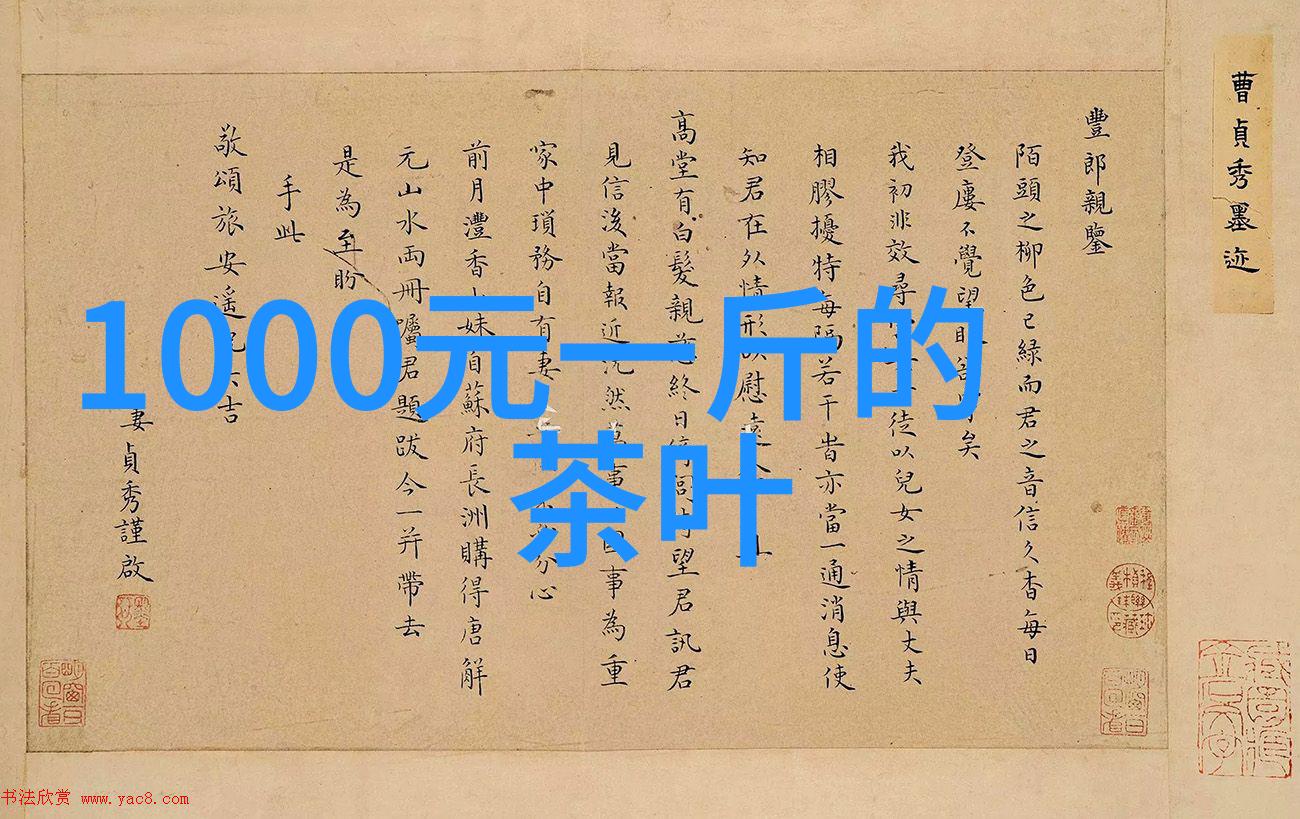 1000元一斤的
茶叶
曹貞秀墨迹
豐郎親鑒
陌頭之柳色已緑而君之音信久杳每日
登廔不覺望矣
我初非效尋徒以兒女之情與丈夫
相膠擾特每隔若干峕亦當一通消息使
知君在外情形以慰遠
高堂有白髮親慈終日倚閭望君訊君
見信後當報近況然萬事國事為重
家中瑣務自有妻分心
前月灃香妹自蘇府長洲購得唐解
元山水兩冊囑君題跋今一并帶去
是為至盼
手此
敬頌旅安遥吉
妻貞秀謹啟
书法欣赏 www.yac8.com